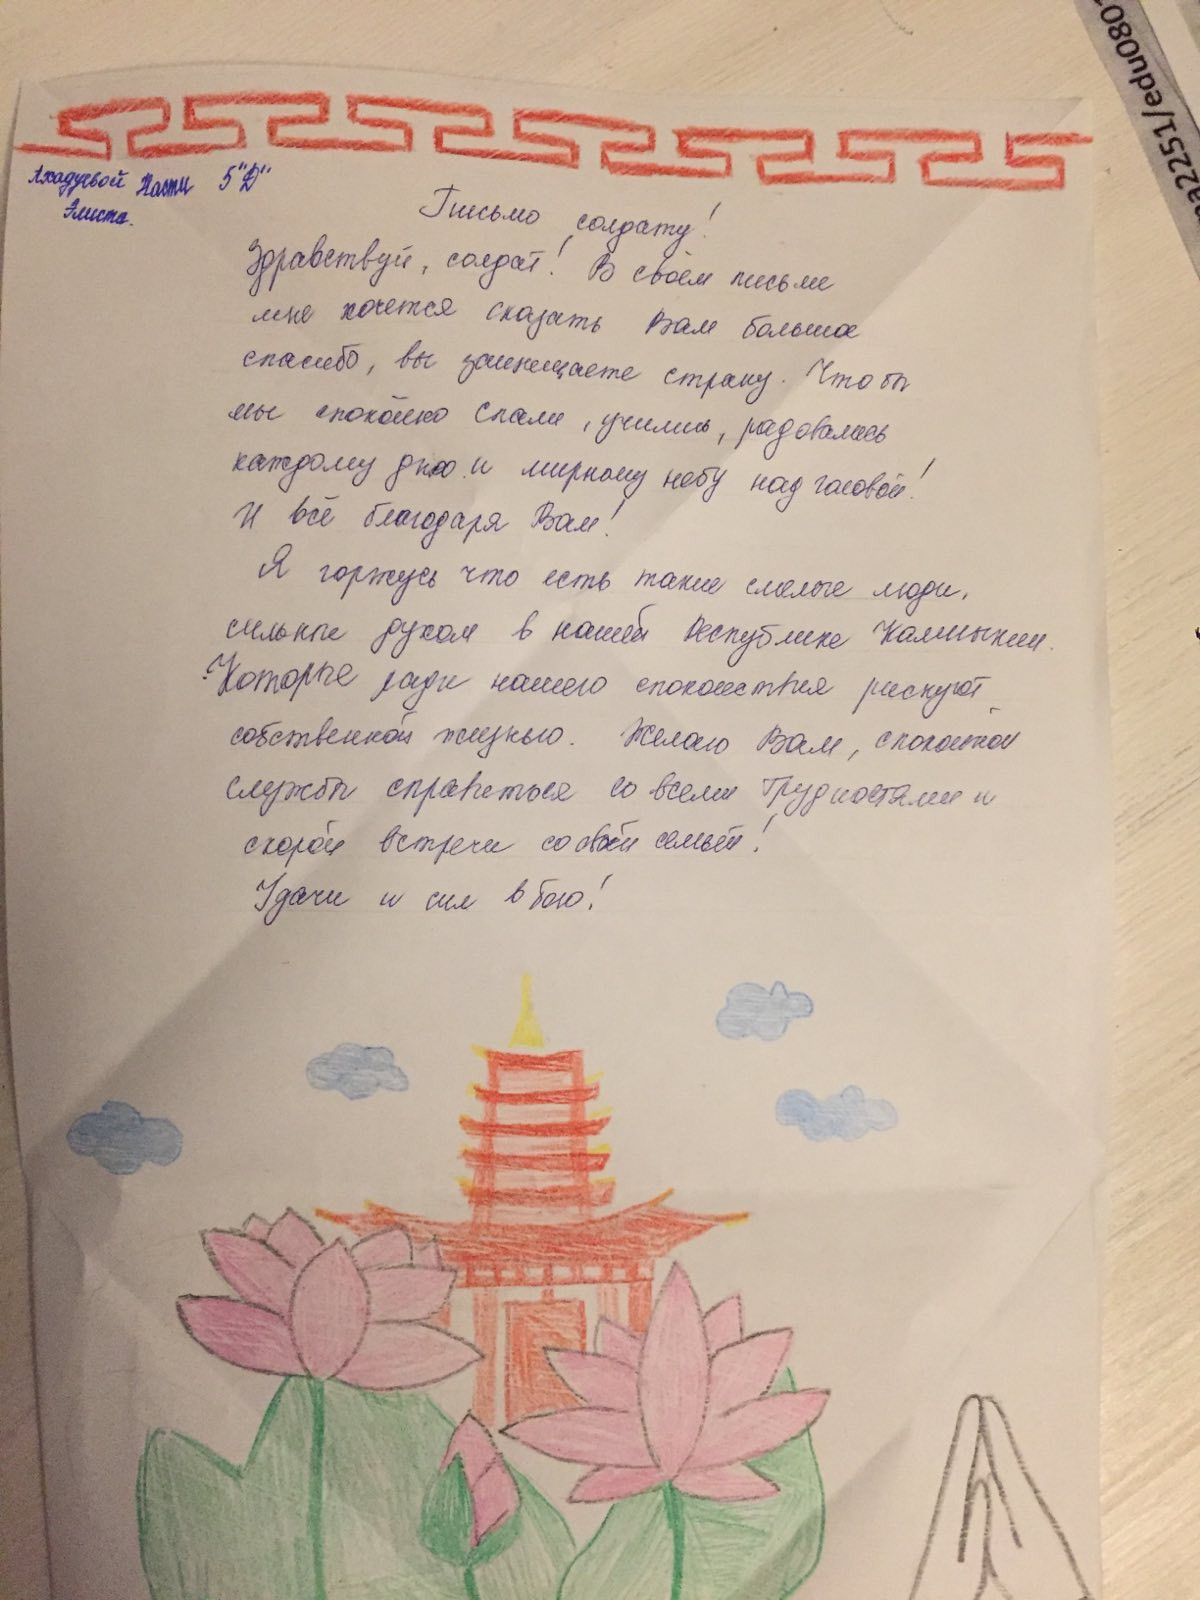 Насти 5"Д"
Элиста.
Письмо солдату!
Здравствуй, солдат! В своём письме
мне хочется сказать Вам большое
спасибо, вы защищаете страну. Что бы
мы спокойно спали, учились, радовались
каждому дню и мирному небу над головой!
И всё благодаря Вам!
Я горжусь что есть такие смелые люди,
сильные духом в нашей Республике Калмыкии.
Которые ради нашего спокойствия рискуют
собственной жизнью. Желаю Вам, спокойной
службы справиться со всеми трудностями и
скорой встречи со своей семьёй!
Удачи и сил в бою!
a2251/edu080